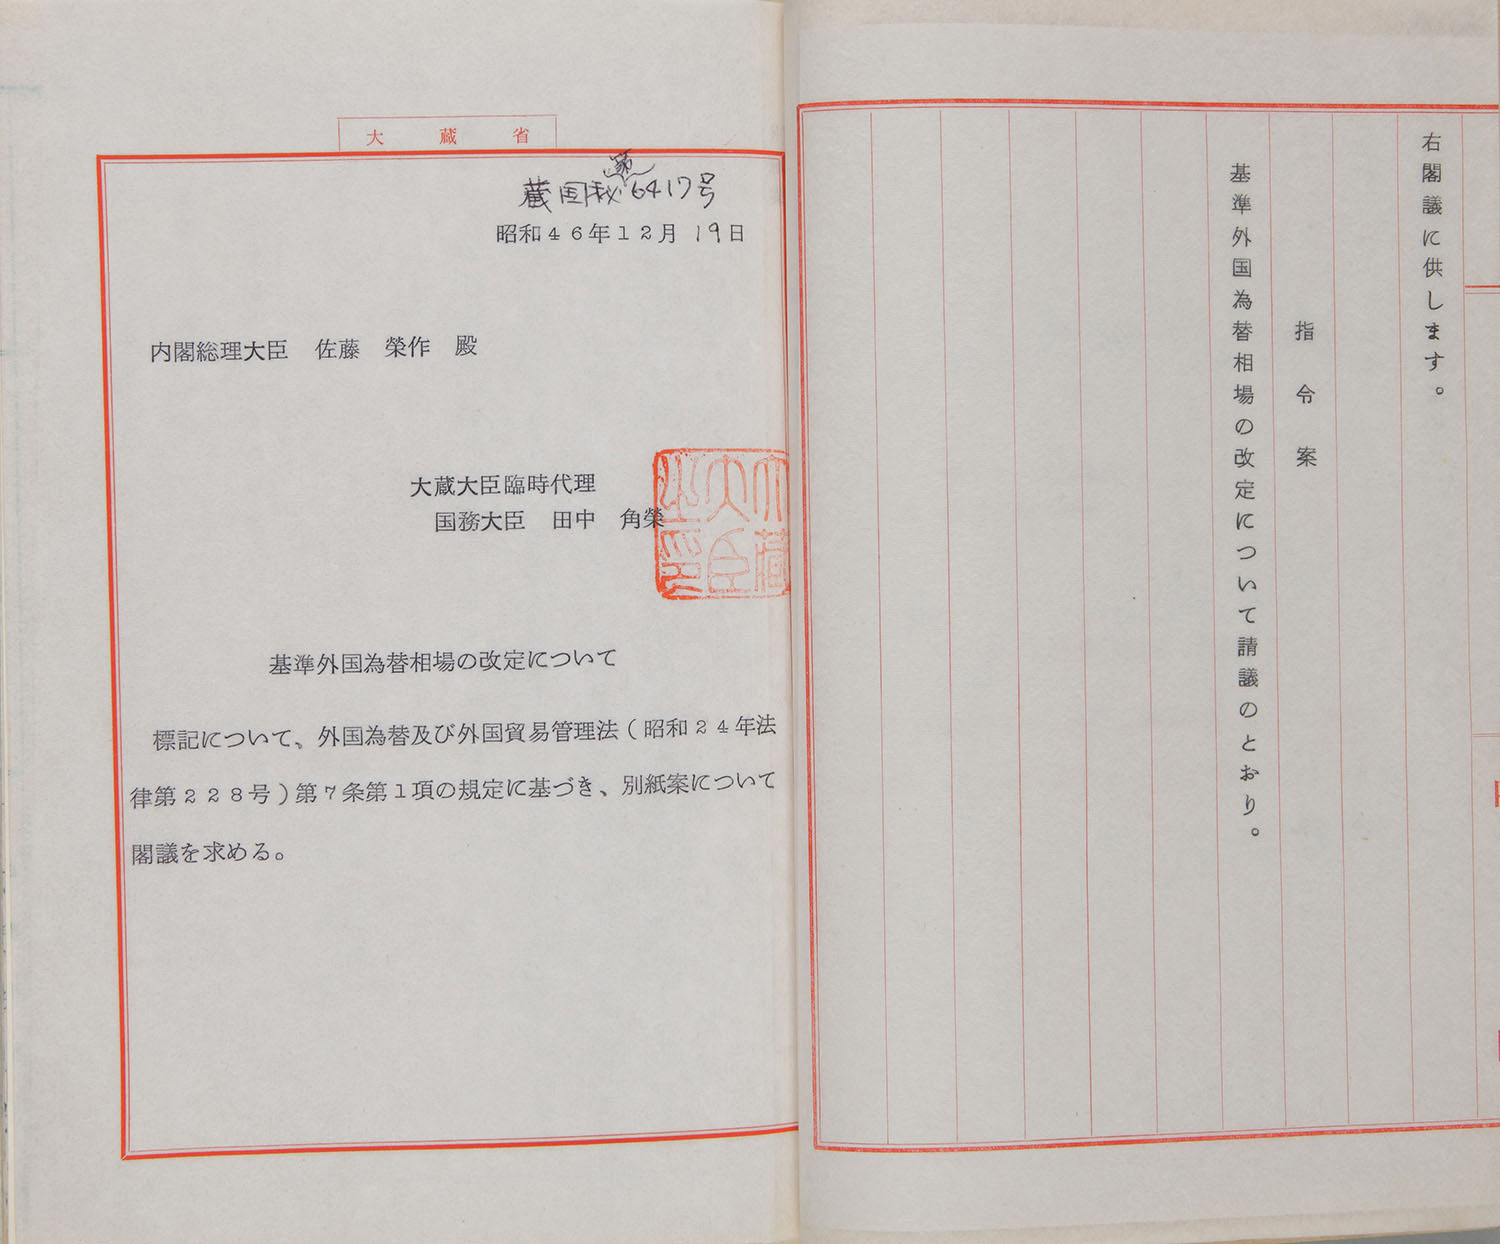 右閣議に供します。
指令案
基準外国為替相場の改定について請議のとおり。
大蔵省
蔵国秘第6417号
昭和46年12月19日
内閣総理大臣　佐藤　榮作　殿
大蔵大臣臨時代理
国務大臣　田中　角榮
大蔵大臣之印
基準外国為替相場の改定について
標記について、外国為替及び外国貿易管理法(昭和24年法
律第228号)第7条第1項の規定に基づき、別紙案について
閣議を求める。